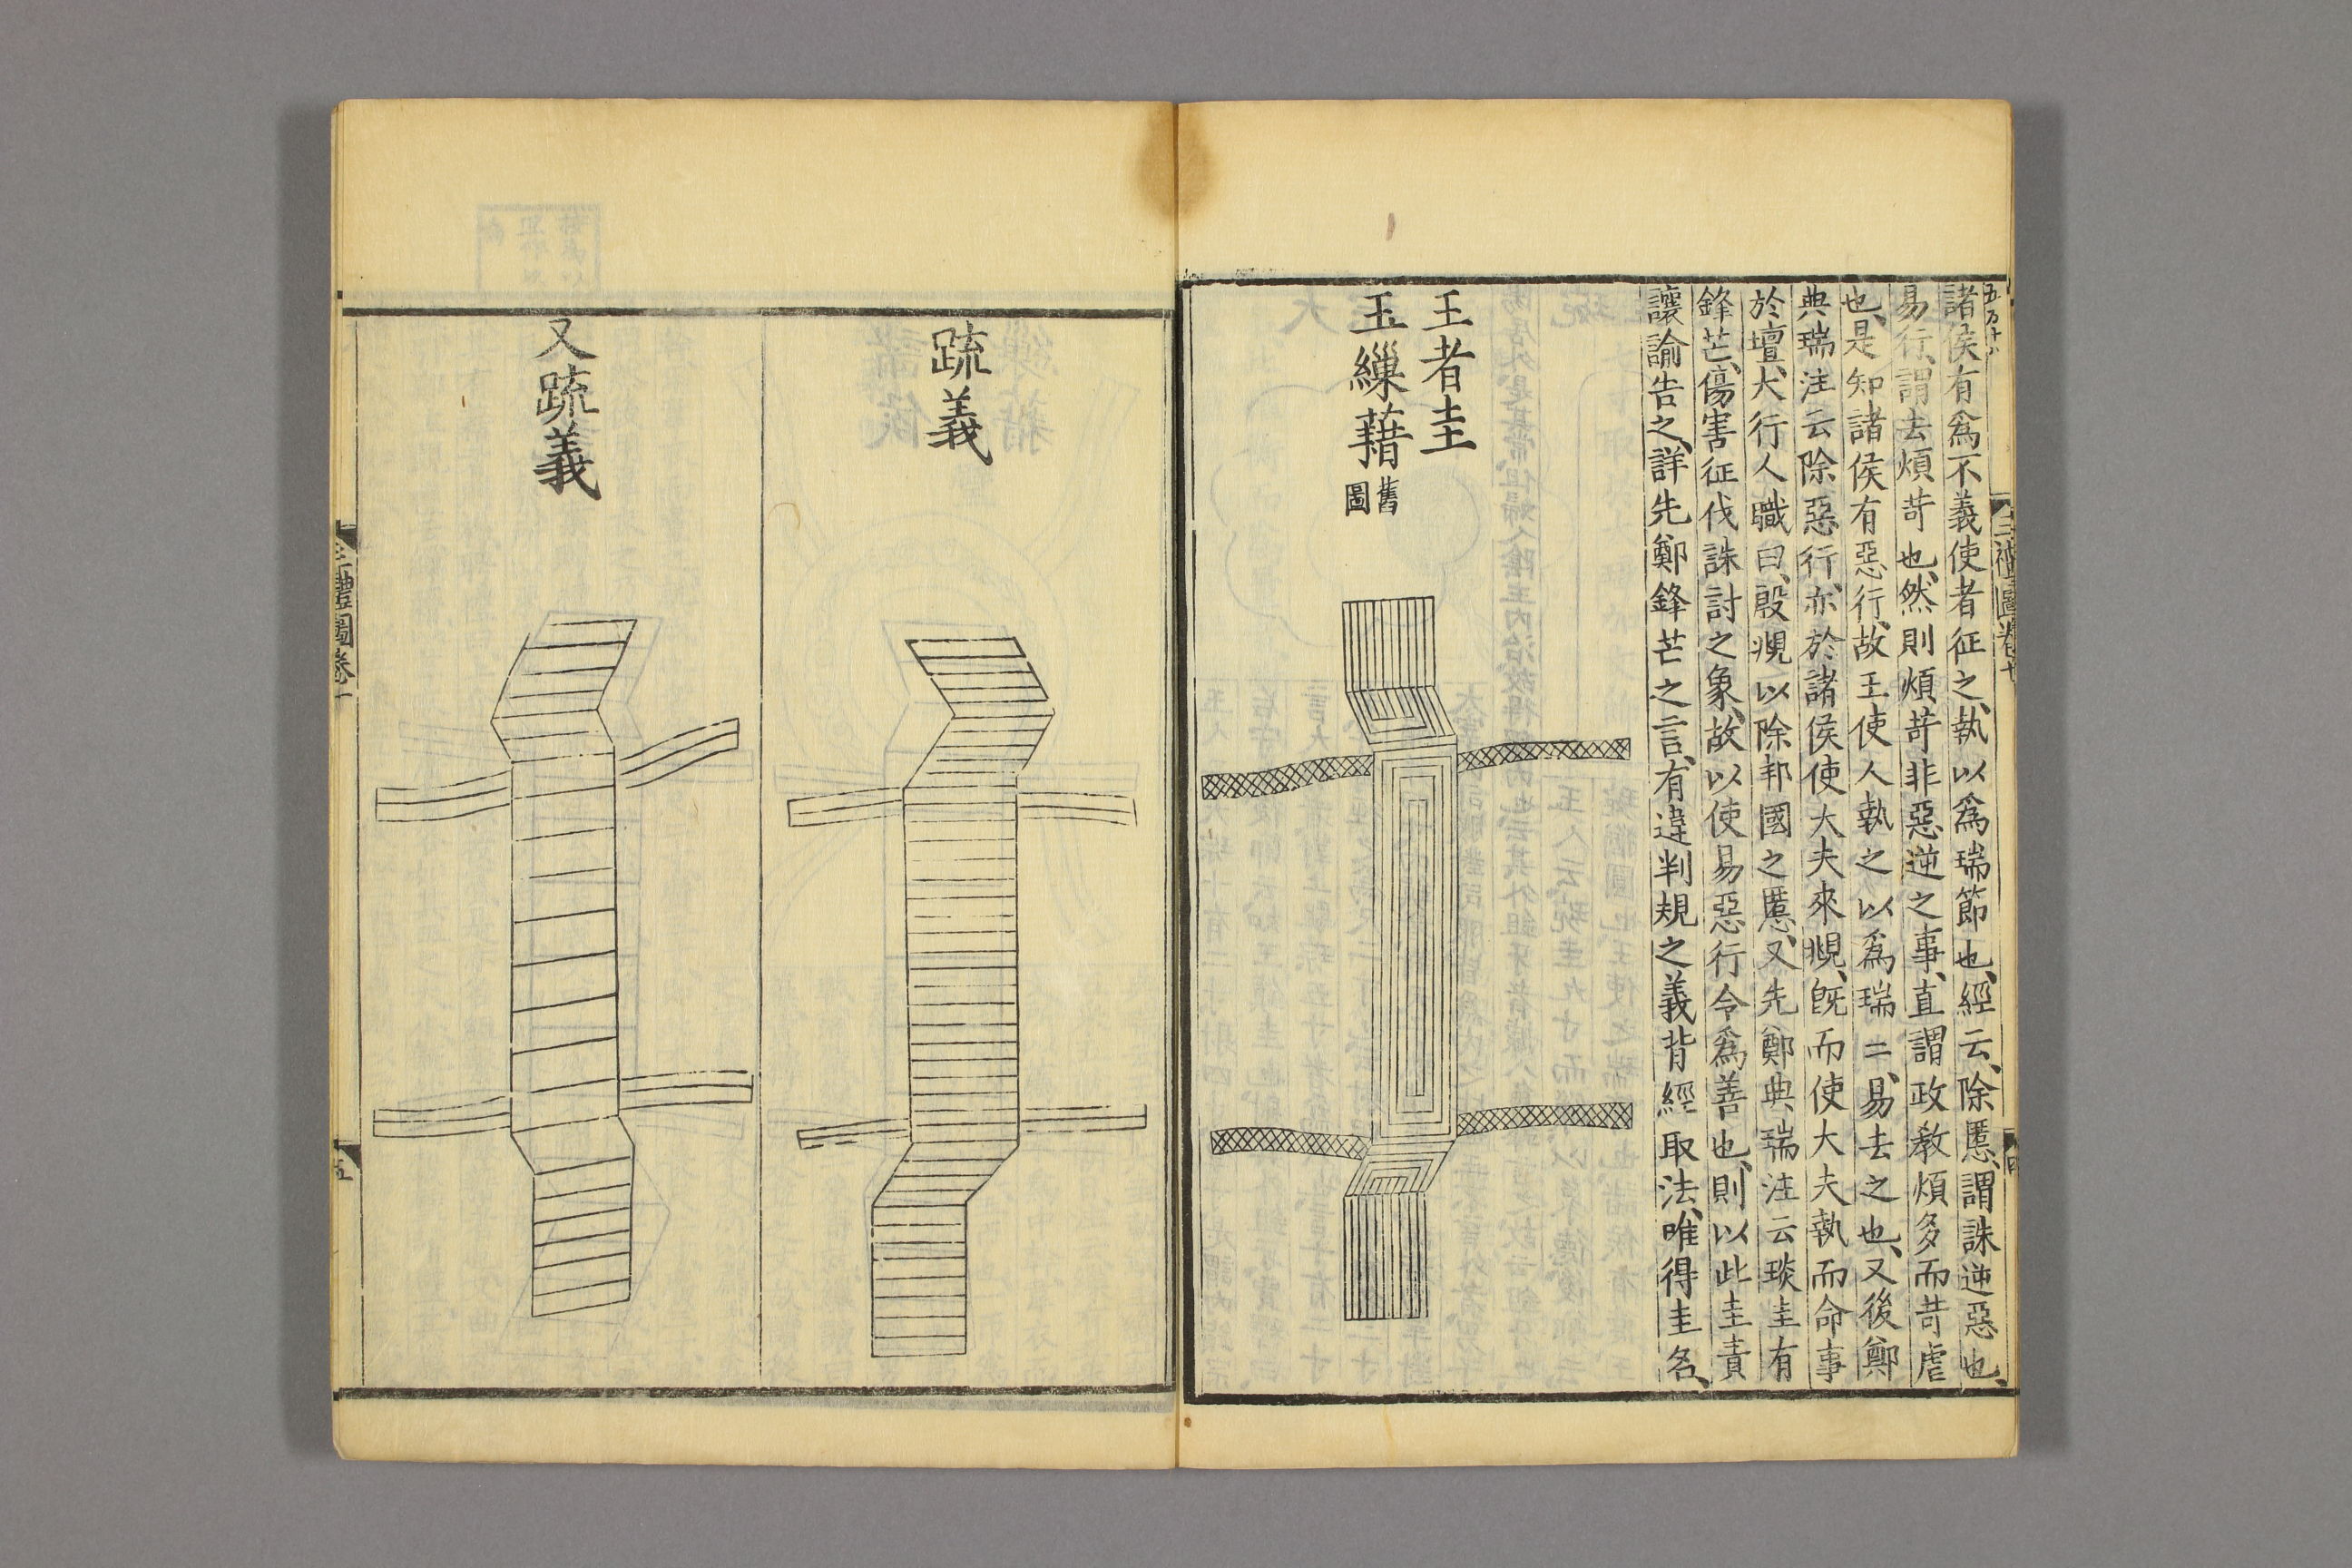 諸侯有爲不義使者征之、執以爲瑞節也、經云、除慝、謂誅逆惡也、
易行、謂去煩苛也、然則煩苛非惡逆之事、直謂政教煩多而苛虐
也、是知諸侯有惡行、故王使人執之以爲瑞二、易去之也、又後鄭
典瑞注云除惡行、亦於諸侯使大夫來覜、旣而使大夫執而命事
於壇、大行人職曰、殷覜以除邦國之慝、又先鄭典瑞注云琰圭有
鋒芒、傷害征伐誅討之象、故以使易惡行令爲善也、則以此圭責
讓諭告之、詳先鄭鋒芒之言、有違判規之義背經取法、唯得圭名、
王者圭
玉繅藉 舊圖
疏義
又疏義
三禮圖卷十
五